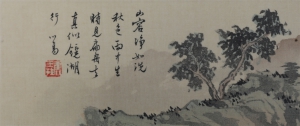 山容净如洗
秋色雨中生
时见扁舟去
真似镜湖
行